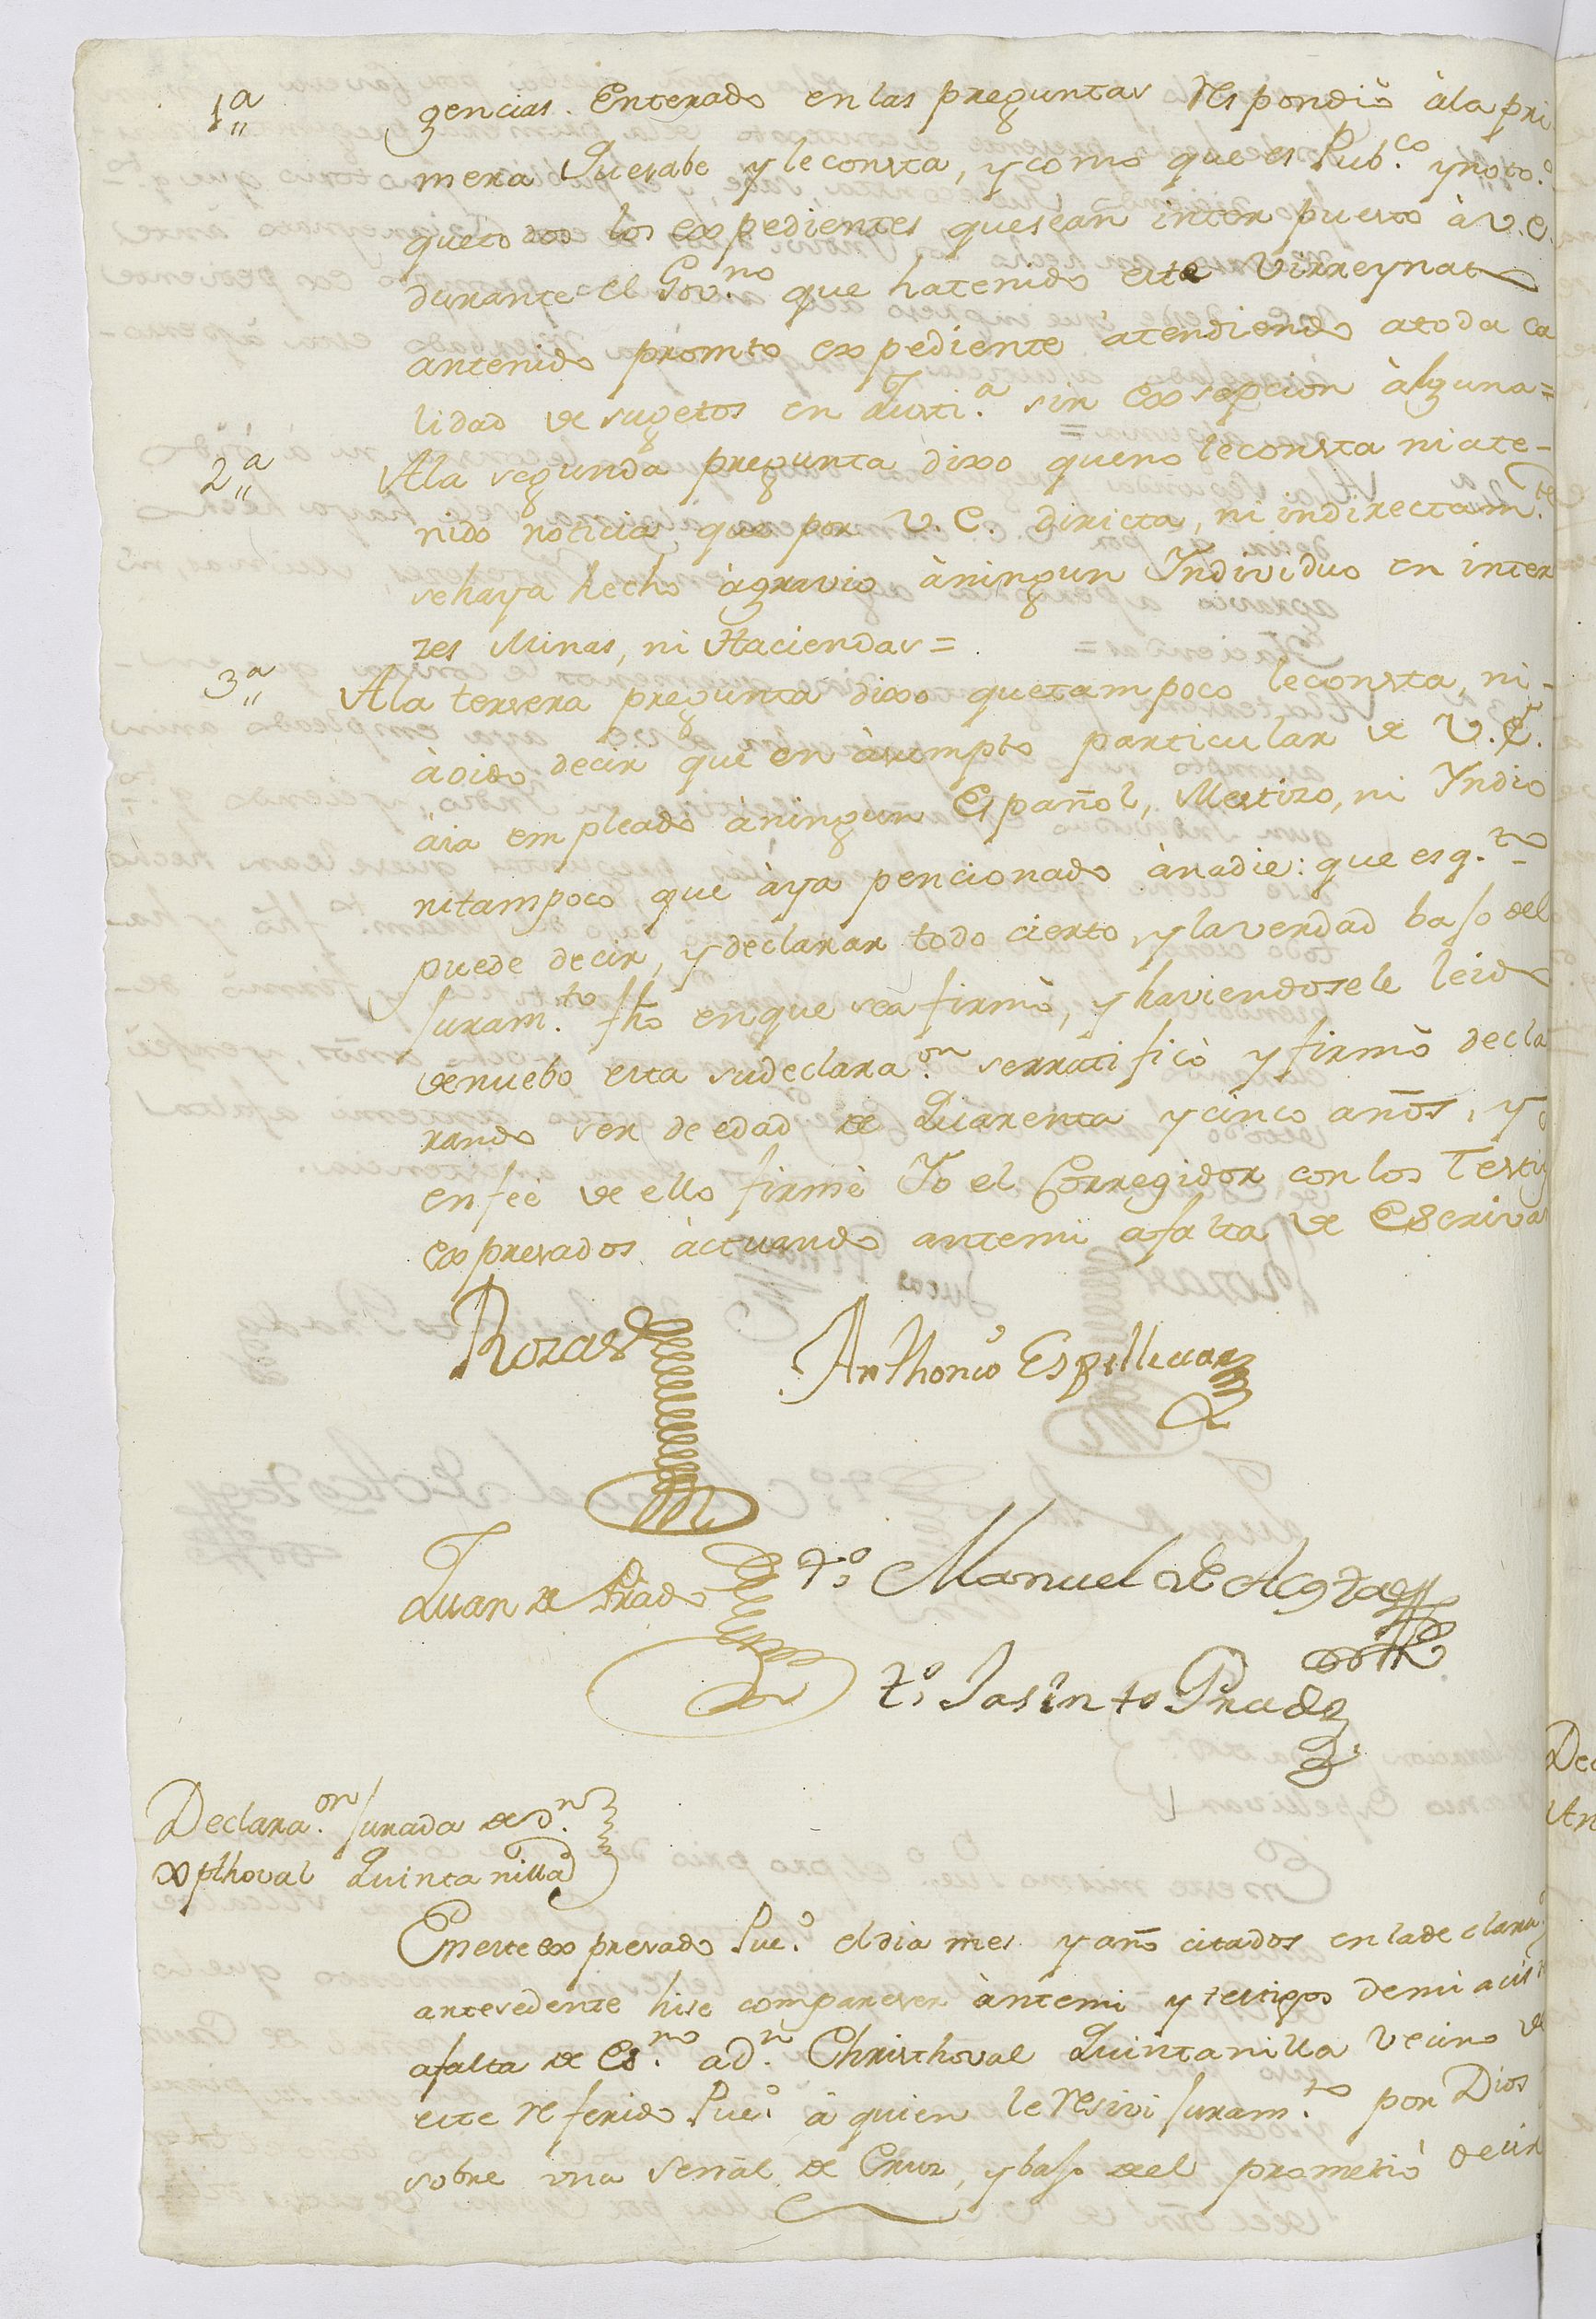 1ª gencias. Enterado en las preguntas respondiò àla pri
mera Que sabe y le consta, y como que es Pub.co y noto.º
que todos los expedientes que sean interpuesto à V.E.
durante el Gov.no que hatenido este Virreynato
antenido promto expediente atendiendo atoda ca
lidad de sugetos en Justi.ª sin exsepcion àlguna=
2ª Ala segunda pregunta dixo queno leconsta niate-
nido noticia que por V.E. diricta, ni indirectam.te
sehaya hecho àgravio àningun Yndividuo en inter
zes Minas, ni Haciendas=
3ª Ala tersera pregunta dixo quetampoco leconsta, ni-
àoido decir que en àsumpto particular de V.E.
àia empleado àningun Español, Mestizo, ni Yndio
nitampoco que àya pencionado ànadie: que es q.to
puede decir, y declarar todo cierto, y laverdad bajo del
juram.to fho enque sea firmò, y haviendosele leido
denuebo esta sudeclara.on serratificò y firmò decla
rando ser de edad de Quarenta y cinco años, y
enfeè de ello firmè Yo el Corregidor con los Testig
expresados àctuando antemi afalta de Escriva
Rozas
Anthonio Espelliuar
Juan de Prado
t.º Manuel de Acosta
t.º Jasinto Prado
Declara.on jurada de D.n
Xpthoval Quintanilla
Eneste expresado Pue.º eldia mes y año citados enladeclara.
antesedente hise compareser àntemi y testigos demi asis
afalta de Es.no aD.n Christhoval Quintanilla Vecino de
este referido Pue.º à quien le resivi juram.to por Dios
sobre una señal de Cruz, y bajo del prometiò decir